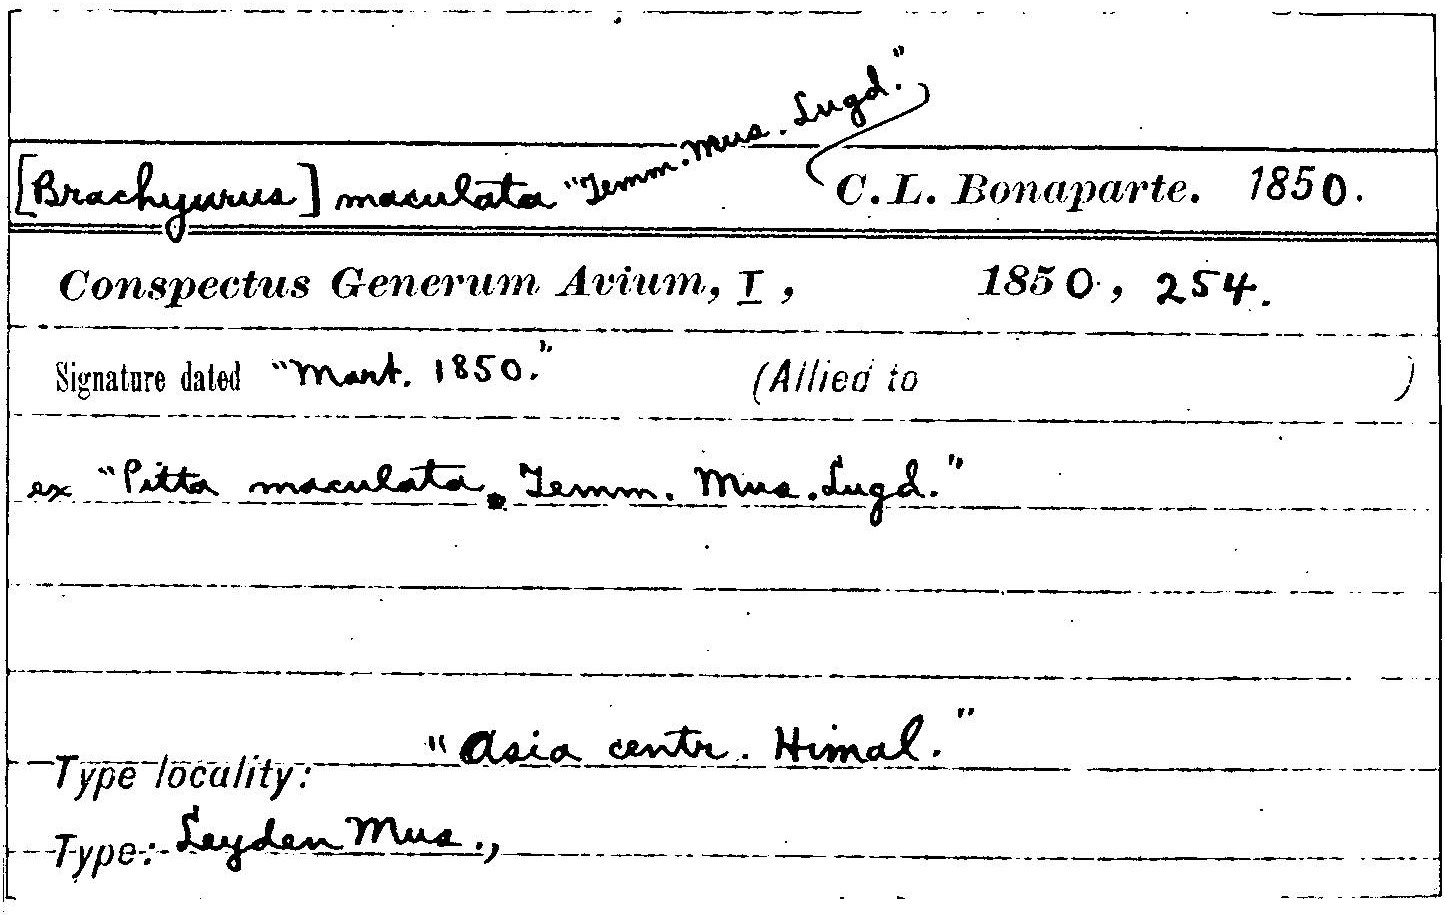 [Brachyurus] maculata "Temm. Mus. Lugd." C. L. Bonaparte. 1850.
Conspectus Generum Avium, I, 1850, 254.
Signature dated "Mart. 1850." (Allied to )
ex "Pitta maculata. Temm. Mus. Lugd."
Type locality: "Asia centr. Himal."
Type: Leyden Mus.,